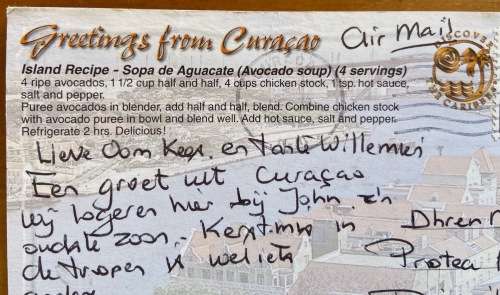 Greetings from Curaçao
Air Mail
Island Recipe - Sopa de Aguacate (Avocado soup) (4 servings)
4 ripe avocados, 1 1/2 cup half and half, 4 cups chicken stock, 1 tsp. hot sauce,
salt and pepper.
Puree avocados in blender, add half and half, blend. Combine chicken stock
with avocado puree in bowl and blend well. Add hot sauce, salt and pepper.
Refrigerate 2 hrs. Delicious!
DISCOVER
CARIBBEAN
Lieve Oom Kees. en Tante Willemien
Een groet uit Curacao
wij logeren hier bij John, z'n
oudste zoon. Kerstmis in
de tropen is weliets
Dhr en
Protea